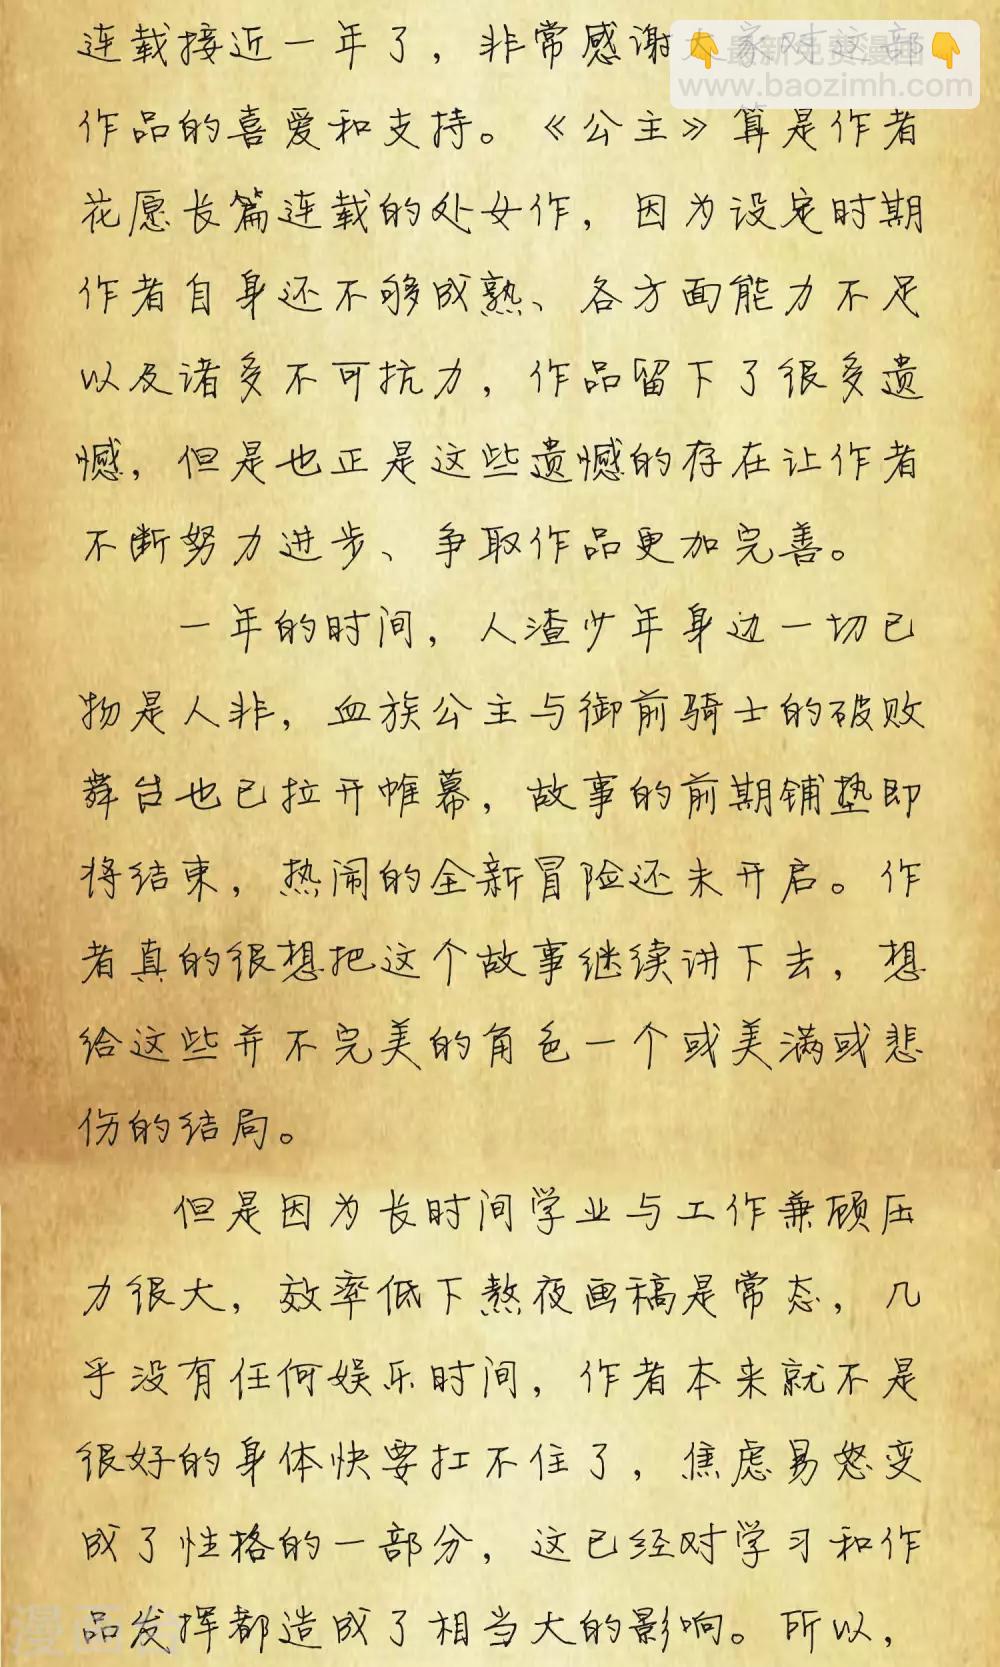 连载接近一年了，非常感谢大家对这部
最新免费漫画
www.baozimh.com
作品的喜爱和支持。《公主》算是作者
花愿长篇连载的处女作，因为设定时期
作者自身还不够成熟、各方面能力不足
以及诸多不可抗力，作品留下了很多遗
憾，但是也正是这些遗憾的存在让作者
不断努力进步、争取作品更加完善。
一年的时间，人渣少年身边一切已
物是人非，血族公主与御前骑士的破败
舞台也已拉开帷幕，故事的前期铺垫即
将结束，热闹的全新冒险还未开启。作
者真的很想把这个故事继续讲下去，想
给这些并不完美的角色一个或美满或悲
伤的结局。
但是因为长时间学业与工作兼顾压
力很大，效率低下熬夜画稿是常态，几
乎没有任何娱乐时间，作者本来就不是
很好的身体快要扛不住了，焦虑易怒变
成了性格的一部分，这已经对学习和作
品发挥都造成了相当大的影响。所以，